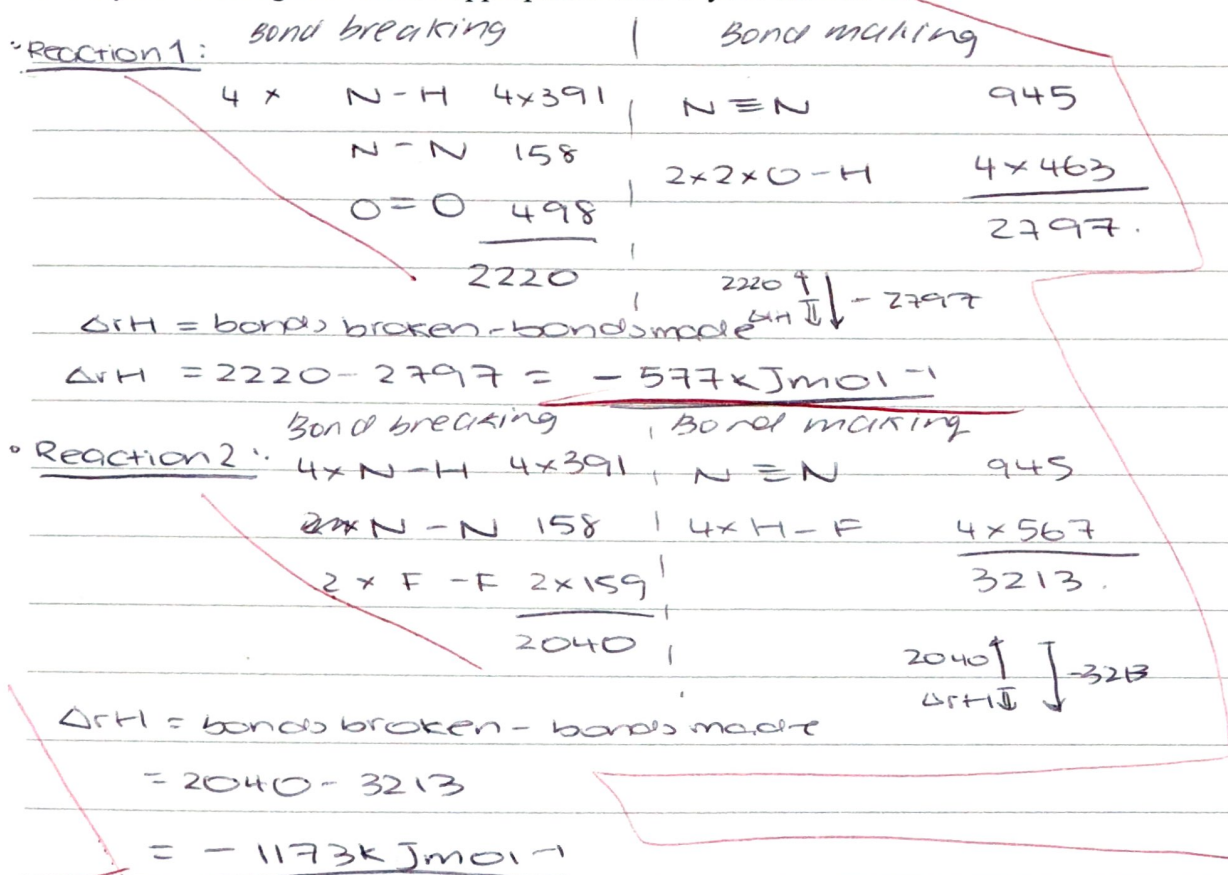 Bond breaking | Bond making
Reaction 1:
4 × N-H 4×391 | N≡N 945
N-N 158 | 2×2×O-H 4×463
O=O 498 | 2797.
2220 | 2220 ↑ ↓ -2797
ΔrH = bonds broken - bonds made ΔrH ⇓
ΔrH = 2220 - 2797 = -577kJmol-1
Bond breaking | Bond making
• Reaction 2: 4×N-H 4×391 | N≡N 945
N-N 158 | 4×H-F 4×567
2 × F-F 2×159 | 3213.
2040 | 2040↑ ↓-3213
ΔrH⇓
ΔrH = bonds broken - bonds made
= 2040 - 3213
= - 1173kJmol-1